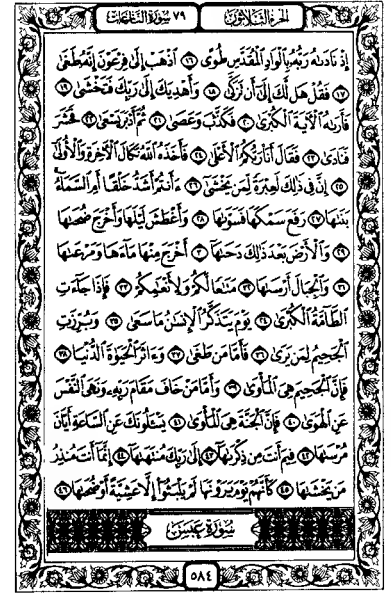 الجزء الثلاثون
٧٩ سورة النازعات
إِذْ نَادَىٰهُ رَبُّهُۥ بِٱلْوَادِ ٱلْمُقَدَّسِ طُوًى ١٦ ٱذْهَبْ إِلَىٰ فِرْعَوْنَ إِنَّهُۥ طَغَىٰ
١٧ فَقُلْ هَل لَّكَ إِلَىٰٓ أَن تَزَكَّىٰ ١٨ وَأَهْدِيَكَ إِلَىٰ رَبِّكَ فَتَخْشَىٰ ١٩
فَأَرَىٰهُ ٱلْـَٔايَةَ ٱلْكُبْرَىٰ ٢٠ فَكَذَّبَ وَعَصَىٰ ٢١ ثُمَّ أَدْبَرَ يَسْعَىٰ ٢٢ فَحَشَرَ
فَنَادَىٰ ٢٣ فَقَالَ أَنَا۠ رَبُّكُمُ ٱلْأَعْلَىٰ ٢٤ فَأَخَذَهُ ٱللَّهُ نَكَالَ ٱلْـَٔاخِرَةِ وَٱلْأُولَىٰٓ
٢٥ إِنَّ فِى ذَٰلِكَ لَعِبْرَةً لِّمَن يَخْشَىٰٓ ٢٦ ءَأَنتُمْ أَشَدُّ خَلْقًا أَمِ ٱلسَّمَآءُ ۚ
بَنَىٰهَا ٢٧ رَفَعَ سَمْكَهَا فَسَوَّىٰهَا ٢٨ وَأَغْطَشَ لَيْلَهَا وَأَخْرَجَ ضُحَىٰهَا
٢٩ وَٱلْأَرْضَ بَعْدَ ذَٰلِكَ دَحَىٰهَآ ٣٠ أَخْرَجَ مِنْهَا مَآءَهَا وَمَرْعَىٰهَا
٣١ وَٱلْجِبَالَ أَرْسَىٰهَا ٣٢ مَتَٰعًا لَّكُمْ وَلِأَنْعَٰمِكُمْ ٣٣ فَإِذَا جَآءَتِ
ٱلطَّآمَّةُ ٱلْكُبْرَىٰ ٣٤ يَوْمَ يَتَذَكَّرُ ٱلْإِنسَٰنُ مَا سَعَىٰ ٣٥ وَبُرِّزَتِ
ٱلْجَحِيمُ لِمَن يَرَىٰ ٣٦ فَأَمَّا مَن طَغَىٰ ٣٧ وَءَاثَرَ ٱلْحَيَوٰةَ ٱلدُّنْيَا ٣٨
فَإِنَّ ٱلْجَحِيمَ هِىَ ٱلْمَأْوَىٰ ٣٩ وَأَمَّا مَنْ خَافَ مَقَامَ رَبِّهِۦ وَنَهَى ٱلنَّفْسَ
عَنِ ٱلْهَوَىٰ ٤٠ فَإِنَّ ٱلْجَنَّةَ هِىَ ٱلْمَأْوَىٰ ٤١ يَسْـَٔلُونَكَ عَنِ ٱلسَّاعَةِ أَيَّانَ
مُرْسَىٰهَا ٤٢ فِيمَ أَنتَ مِن ذِكْرَىٰهَآ ٤٣ إِلَىٰ رَبِّكَ مُنتَهَىٰهَآ ٤٤ إِنَّمَآ أَنتَ مُنذِرُ
مَن يَخْشَىٰهَا ٤٥ كَأَنَّهُمْ يَوْمَ يَرَوْنَهَا لَمْ يَلْبَثُوٓا۟ إِلَّا عَشِيَّةً أَوْ ضُحَىٰهَا ٤٦
سورة عبس
٥٨٤